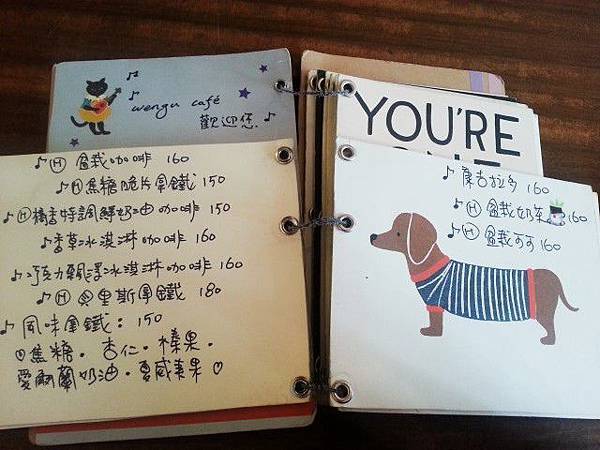 wengu café
歡迎您
♪Ⓗ 盆栽咖啡 160
♪Ⓗ焦糖脆片拿鐵 150
♪Ⓗ橘香特調鮮奶油咖啡 150
♪香草冰淇淋咖啡 160
♪巧克力飄浮冰淇淋咖啡 160
♪Ⓗ貝里斯拿鐵 180
♪風味拿鐵：150
♡焦糖．杏仁．榛果．
愛爾蘭奶油．夏威夷果♡
YOU'RE
♪摩卡拉多 160
♪Ⓗ盆栽奶茶 160
♪Ⓗ盆栽可可 160